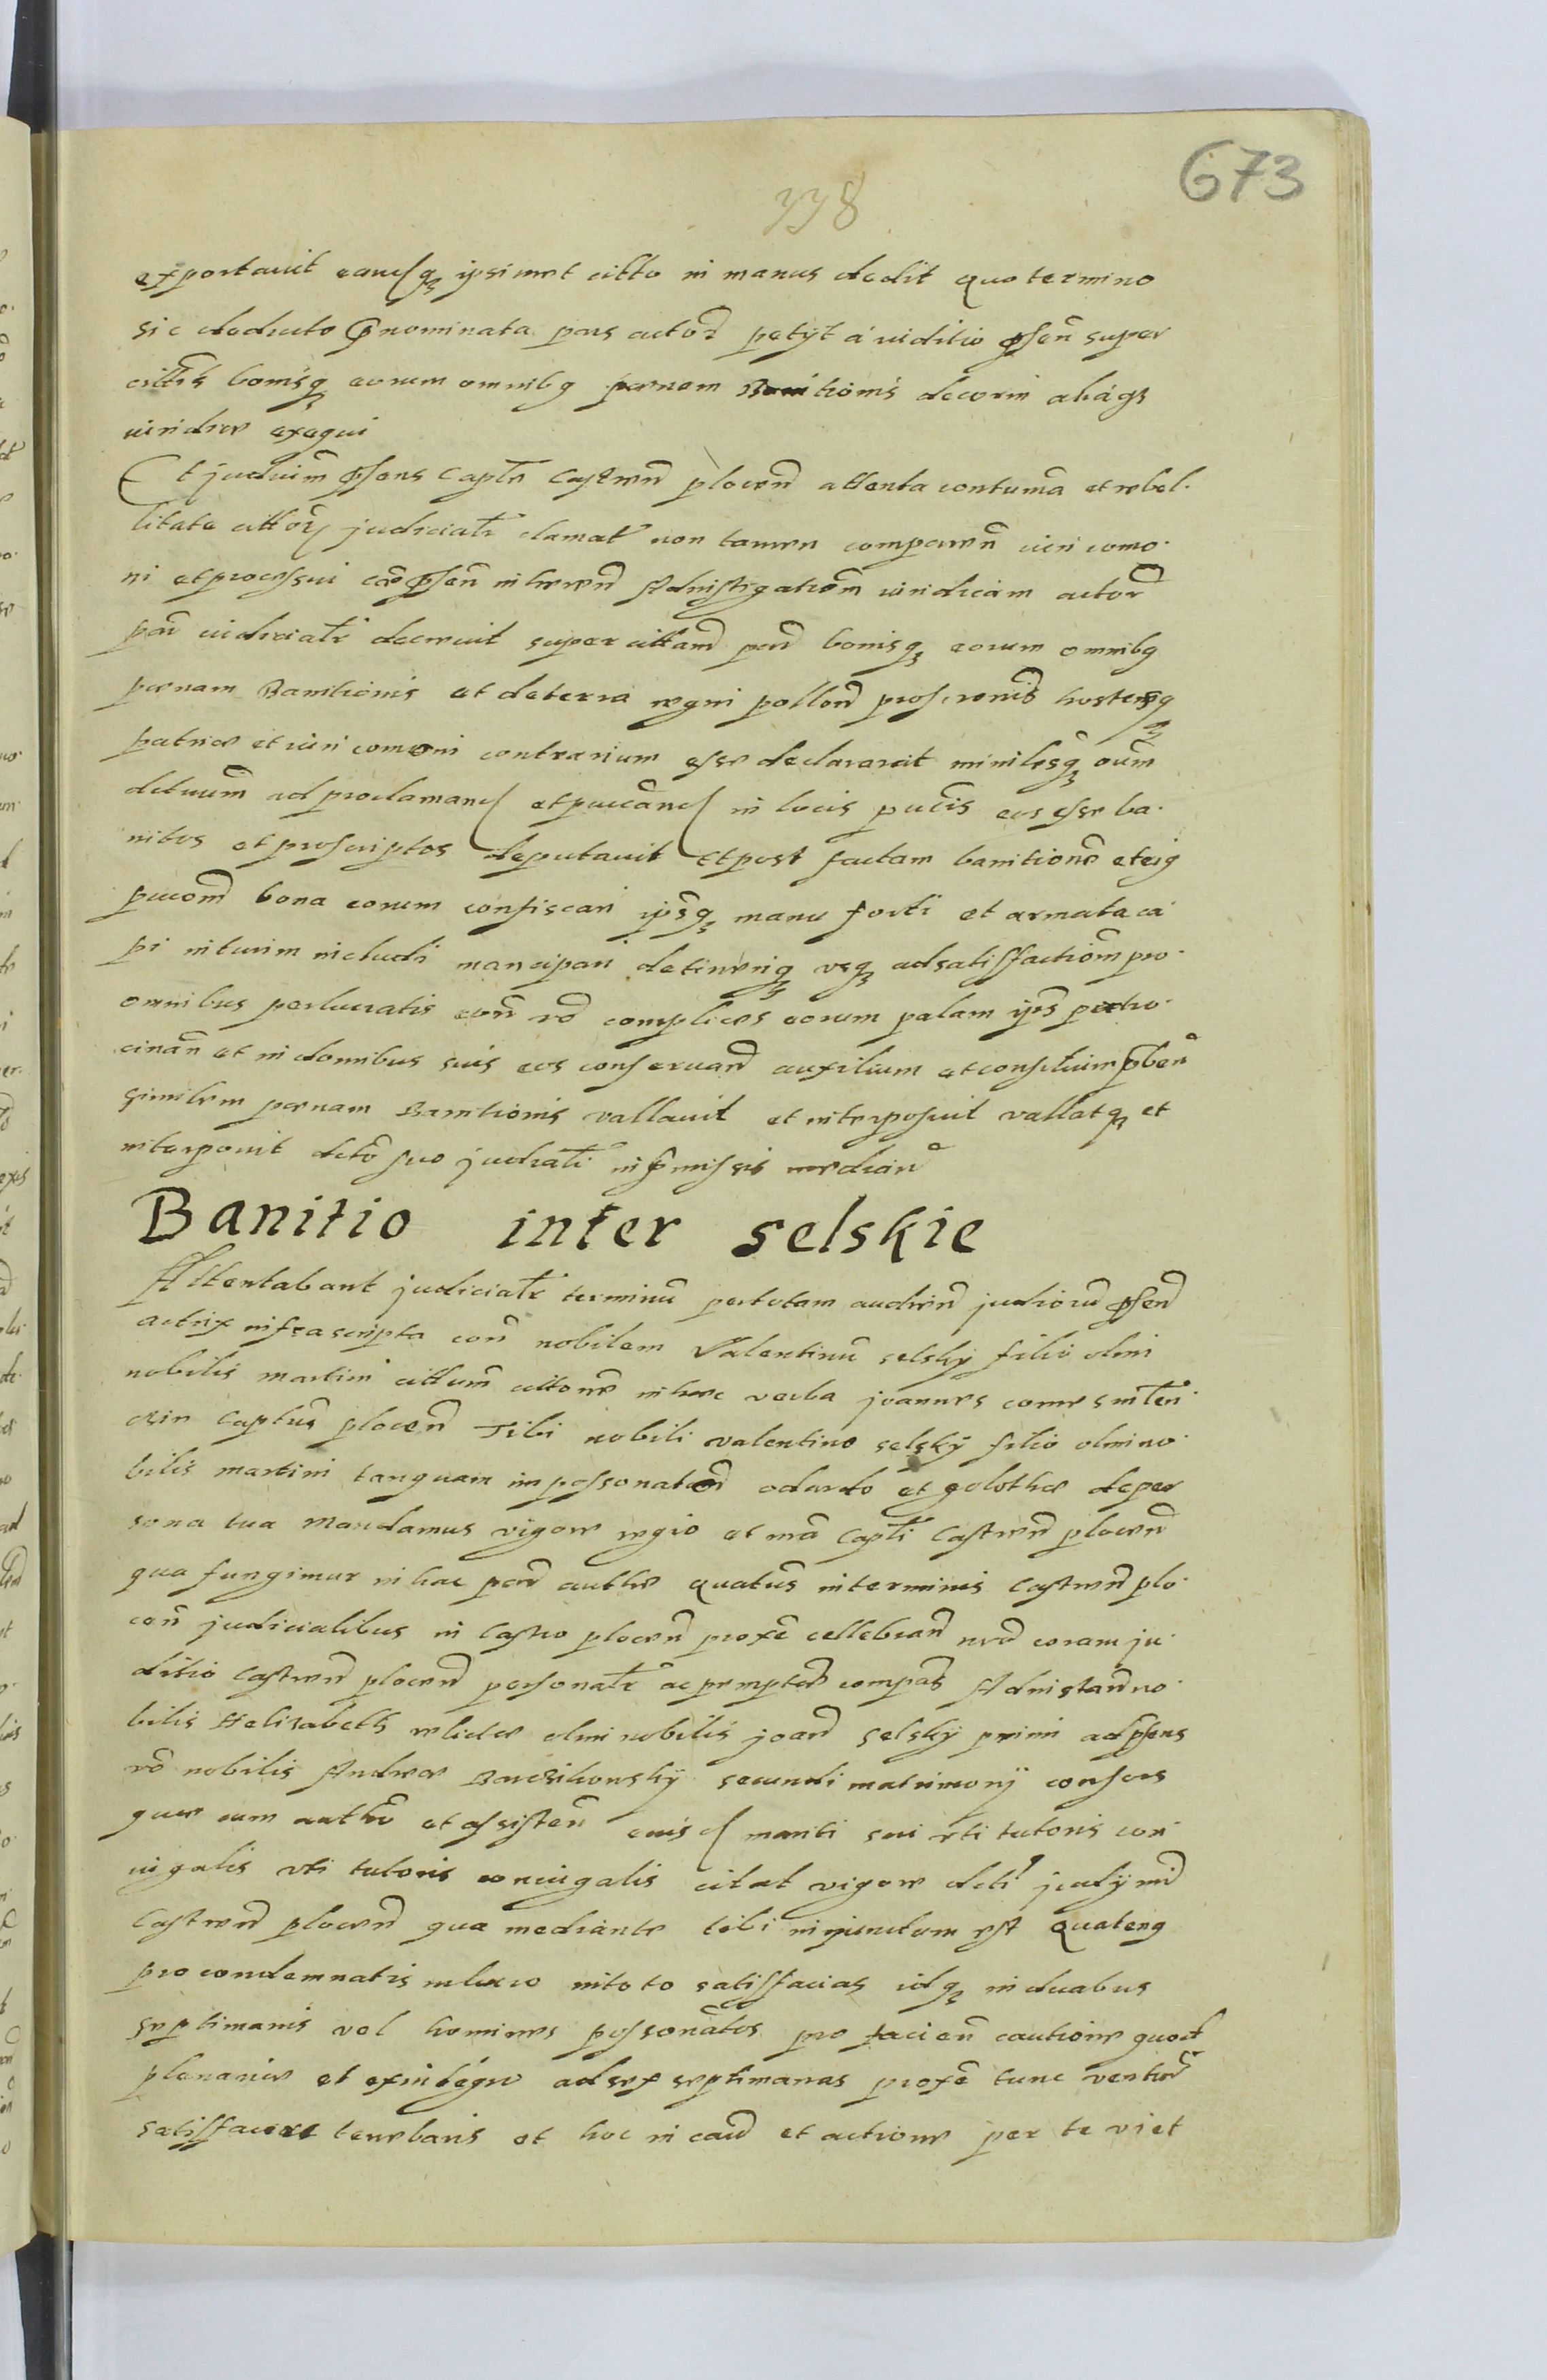 673
338
exportavit eandq ipsimet citto in manus dedit quo termino
sic deducto pnominata pars actor petyt a iuditio psen super
cittis bonisq eorum omnibq poenam Banitionis decerni aliaqs
iuridice exequi
Et judicium psens Captle Castren plocen attenta contuma et rebel.
litate cittor judicialr clamat non tamen comparen iuri como.
ni et processui eor psen inheren Ad instigationem iuridicam actor
par iudicialr decrevit super cittand pard bonisq eorum omnibq
poenam Banitionis et de terra regni pollon proscronis hostemq
patriae et iuri comoni contrarium esse declaravit minilesq oum
debuum ad proclamand et puicand in locis pucis eos esse ba.
nitos et proscriptos deputavit et post factam banitione et eig
pucom bona eorum confiscari ipsq manu forti et armata ca
pi in turim includi mancipari detinerig usq ad satisfactiom pro.
omnibus perlucratis con vo complices eorum palam ips patro.
cinan et in domibus suis eos conservand auxilium et consilium pben
similem poenam Banitionis vallavit et interposuit vallatq et
interponit dcto suo judiciali in pmissis median
Banitio inter selskie
Attentabant judicialr terminu per totam audien judiciu psen
actrix infrascripta con nobilem Valentinu selsky filio olim
nobilis martini cittum cittone in haec verba joannes comes in ten
czin Captus plocen Tibi nobili valentino selsky filio olim no.
bilis martini tanquam impossonatum odardo et golothcz de per
sona tua Mandamus vigore regio et mra Captli Castren plocen
qua fungimur in hac par autthe quatus in terminis Castren plo.
cen judicialibus in Castro plocen proxe cellebrand nrd coram ju.
ditio Castren plocen personalr ac peremptor compas Ad instan no.
bilis Helizabeth relictae olim nobilis joan selsky primi ad psens
vo nobilis Andreae secundi matrimony consors
quae cum autthe et assisten eiusd mariti sui uti tutoris con
iugalis uti tutoris coniugalis citat vigore dcti judy md
Castren plocen qua mediante tibi iniunctum est Quateng
pro condemnatis in lucro in toto satisfacias idq in duabus
septimanis vel homines possonatos pro facien cautione quod
plenarie et ex integro ad sex septimanas proxe tunc ventur
satisfacere tenebaris et hoc in cau et actione per te viet